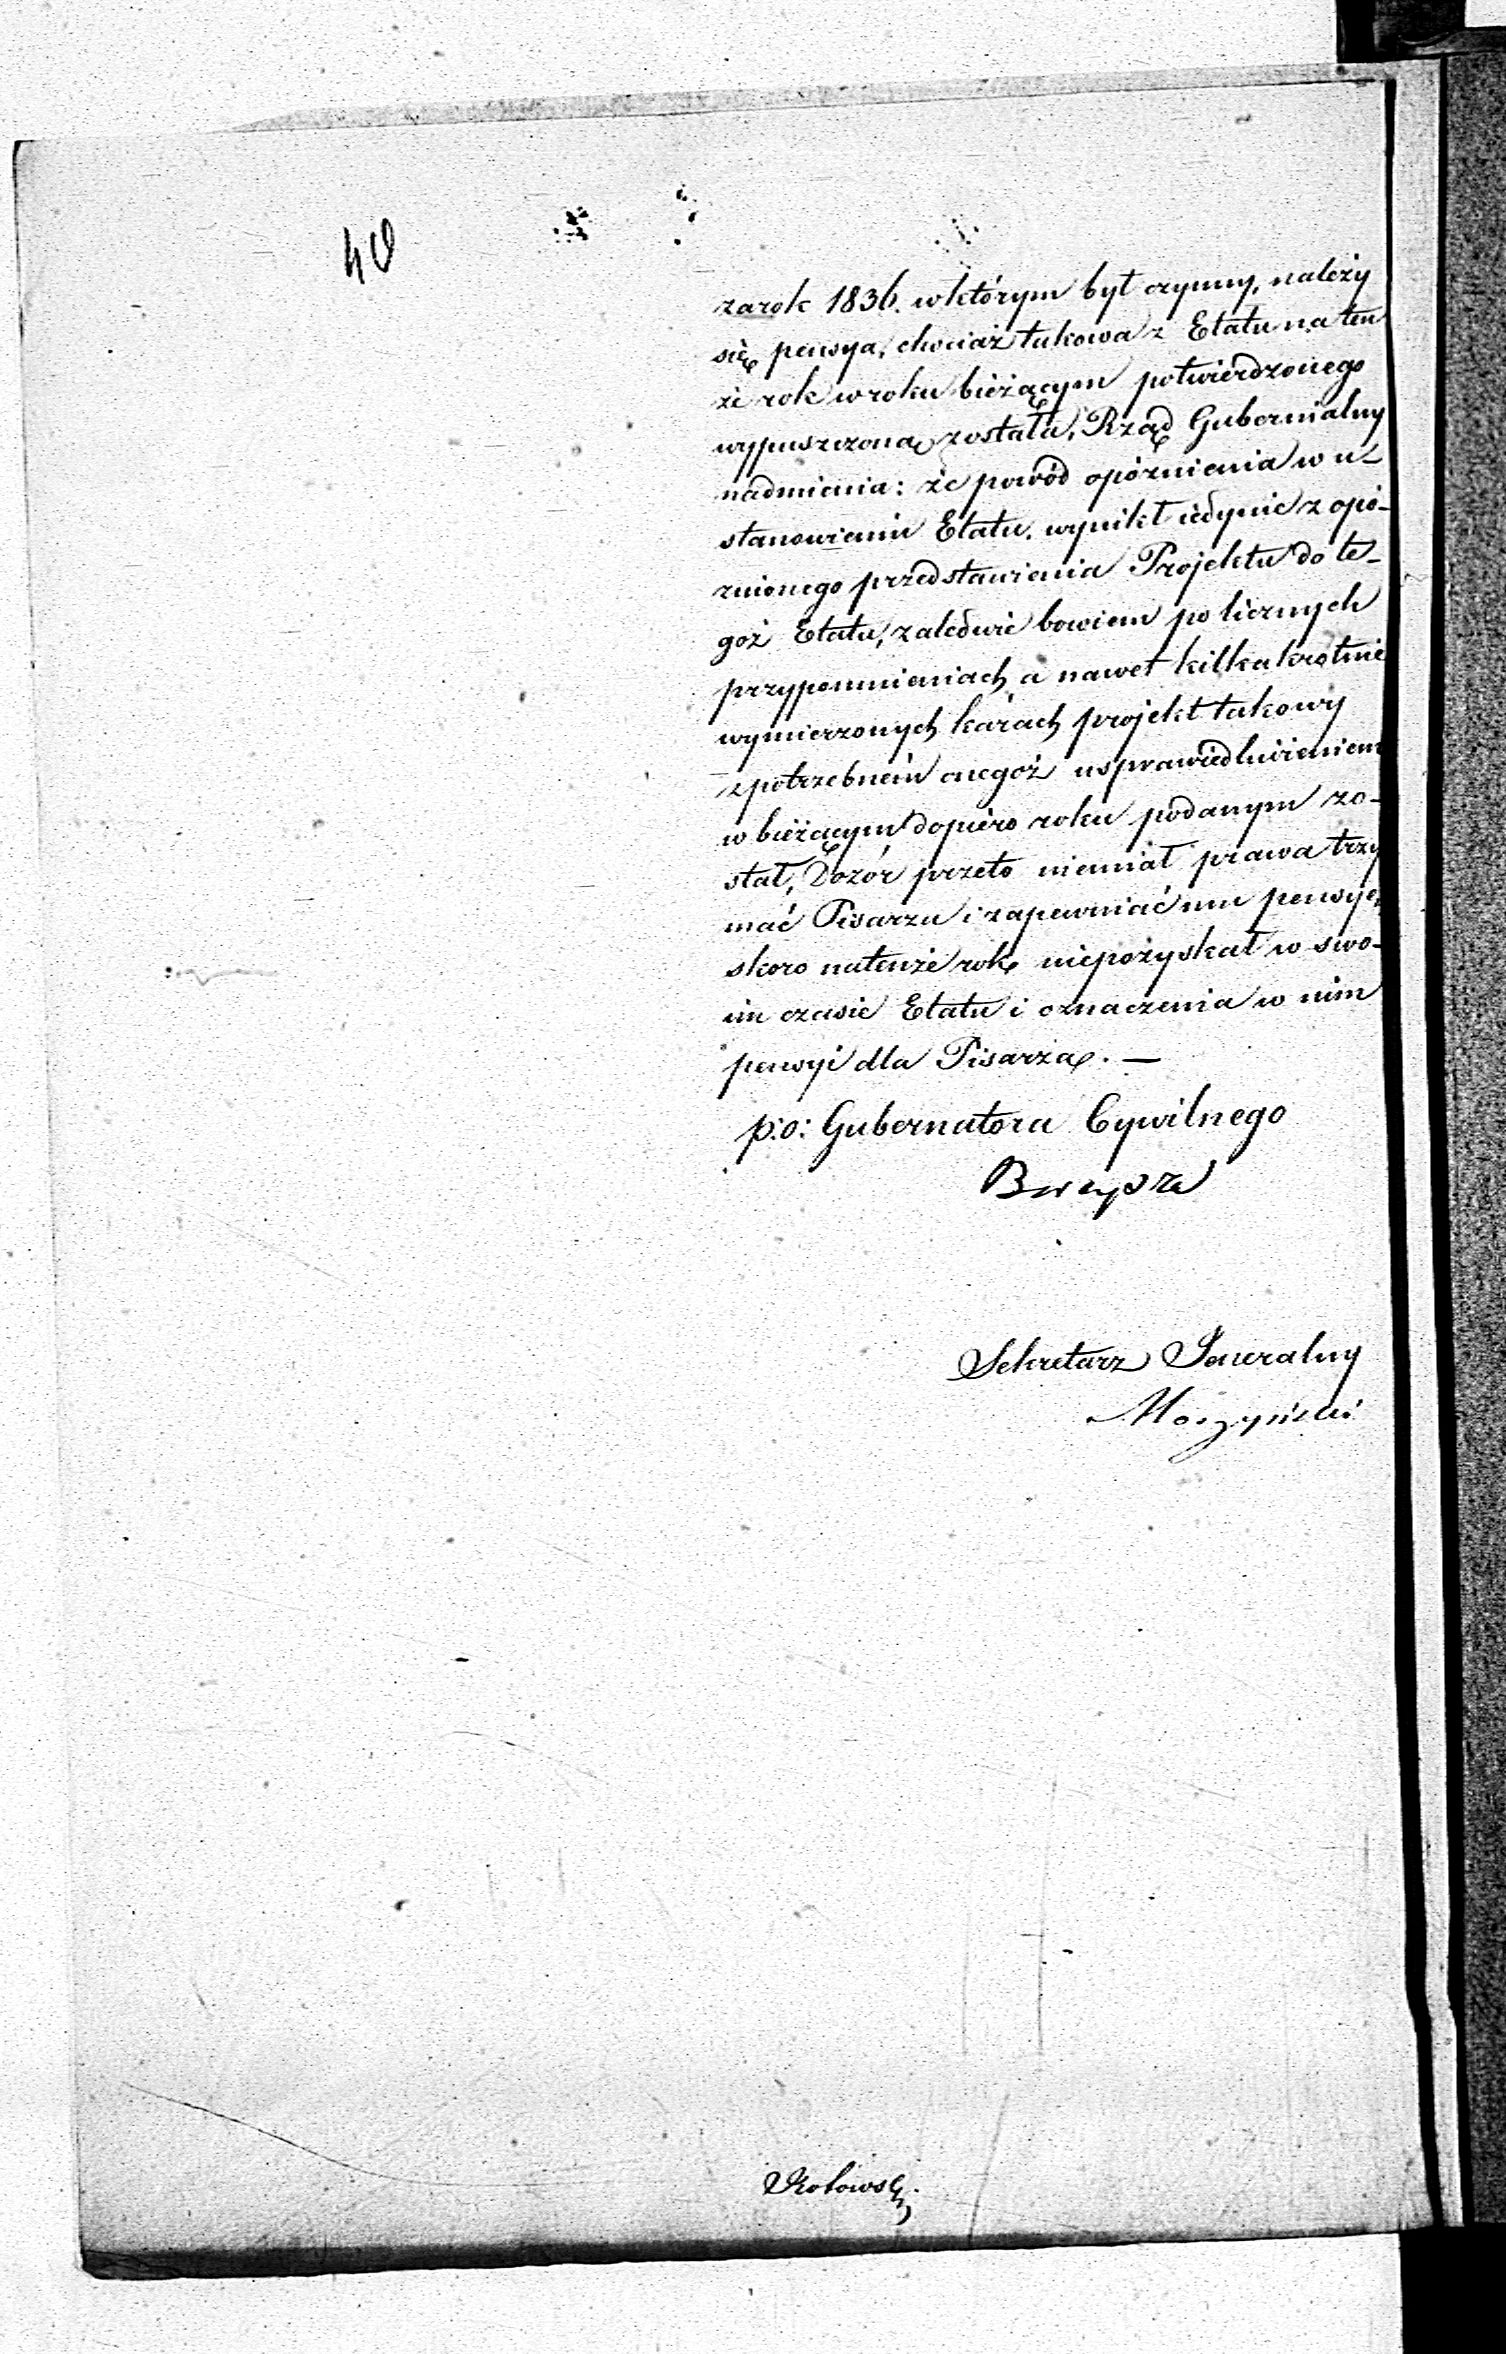 40
za rok 1836. w którym był czynny, należy
się pensya, chociaż takowa z Etatu na ten
że rok w roku bieżącym potwierdzonego
wypuszczona została, Rząd Gubernialny
nadmienia: że powód opóznienia w u-
stanowieniu Etatu, wynikł iedynie z opó-
znionego przedstawienia Projektu do te-
goż Etatu, zaledwie bowiem po licznych
przypomnieniach, a nawet kilkakrotnie
wymierzonych karach projekt takowy
z potrzebném onegoż usprawiedliwieniem
w bieżącym dopiero roku podanym zo-
stał, Dozór przeto niemiał prawa trzy
mać Pisarza i zapewniać mu pensye,
skoro natenże rok niepozyskał w swo-
im czasie Etatu i oznaczenia w nim
pensyi dla Pisarza. —
p:o: Gubernatora Cywilnego
Sekretarz Jeneralny